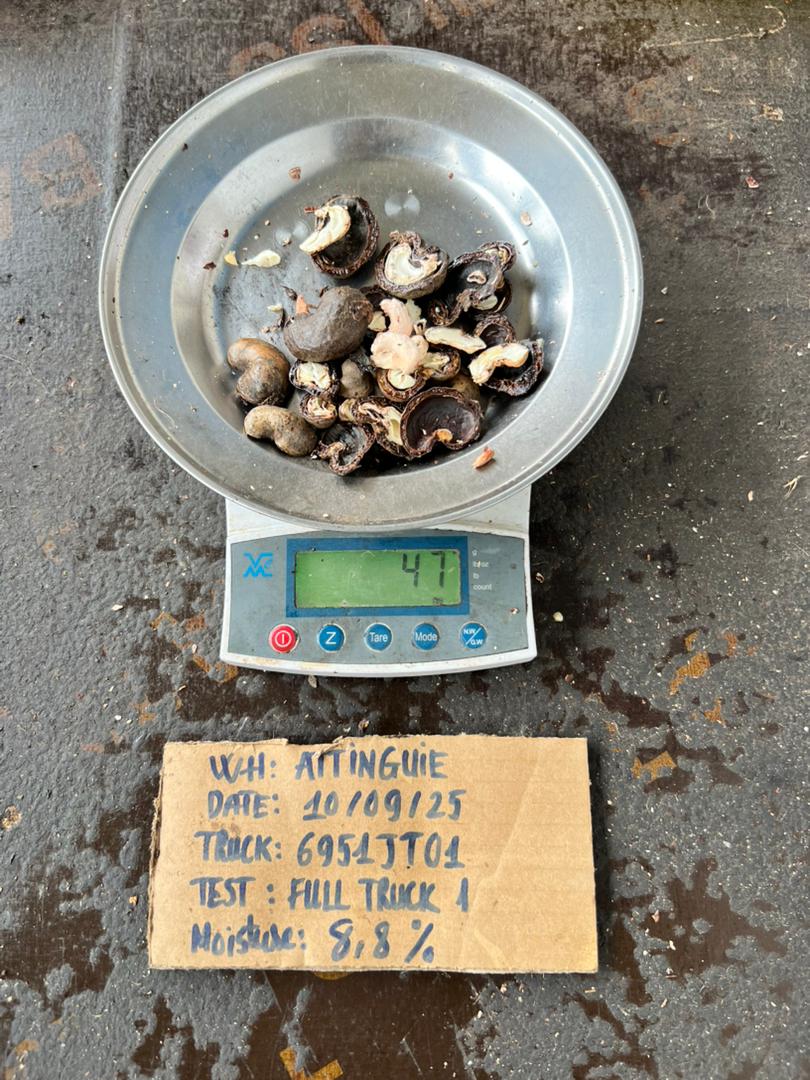 47
g
lb/oz
lb
count
Z
Tare
Mode
N.W/G.W
W.H: AITINGUIE
DATE: 10/09/25
TRUCK: 6951JT01
TEST: FULL TRUCK 1
Moisture: 8,8 %